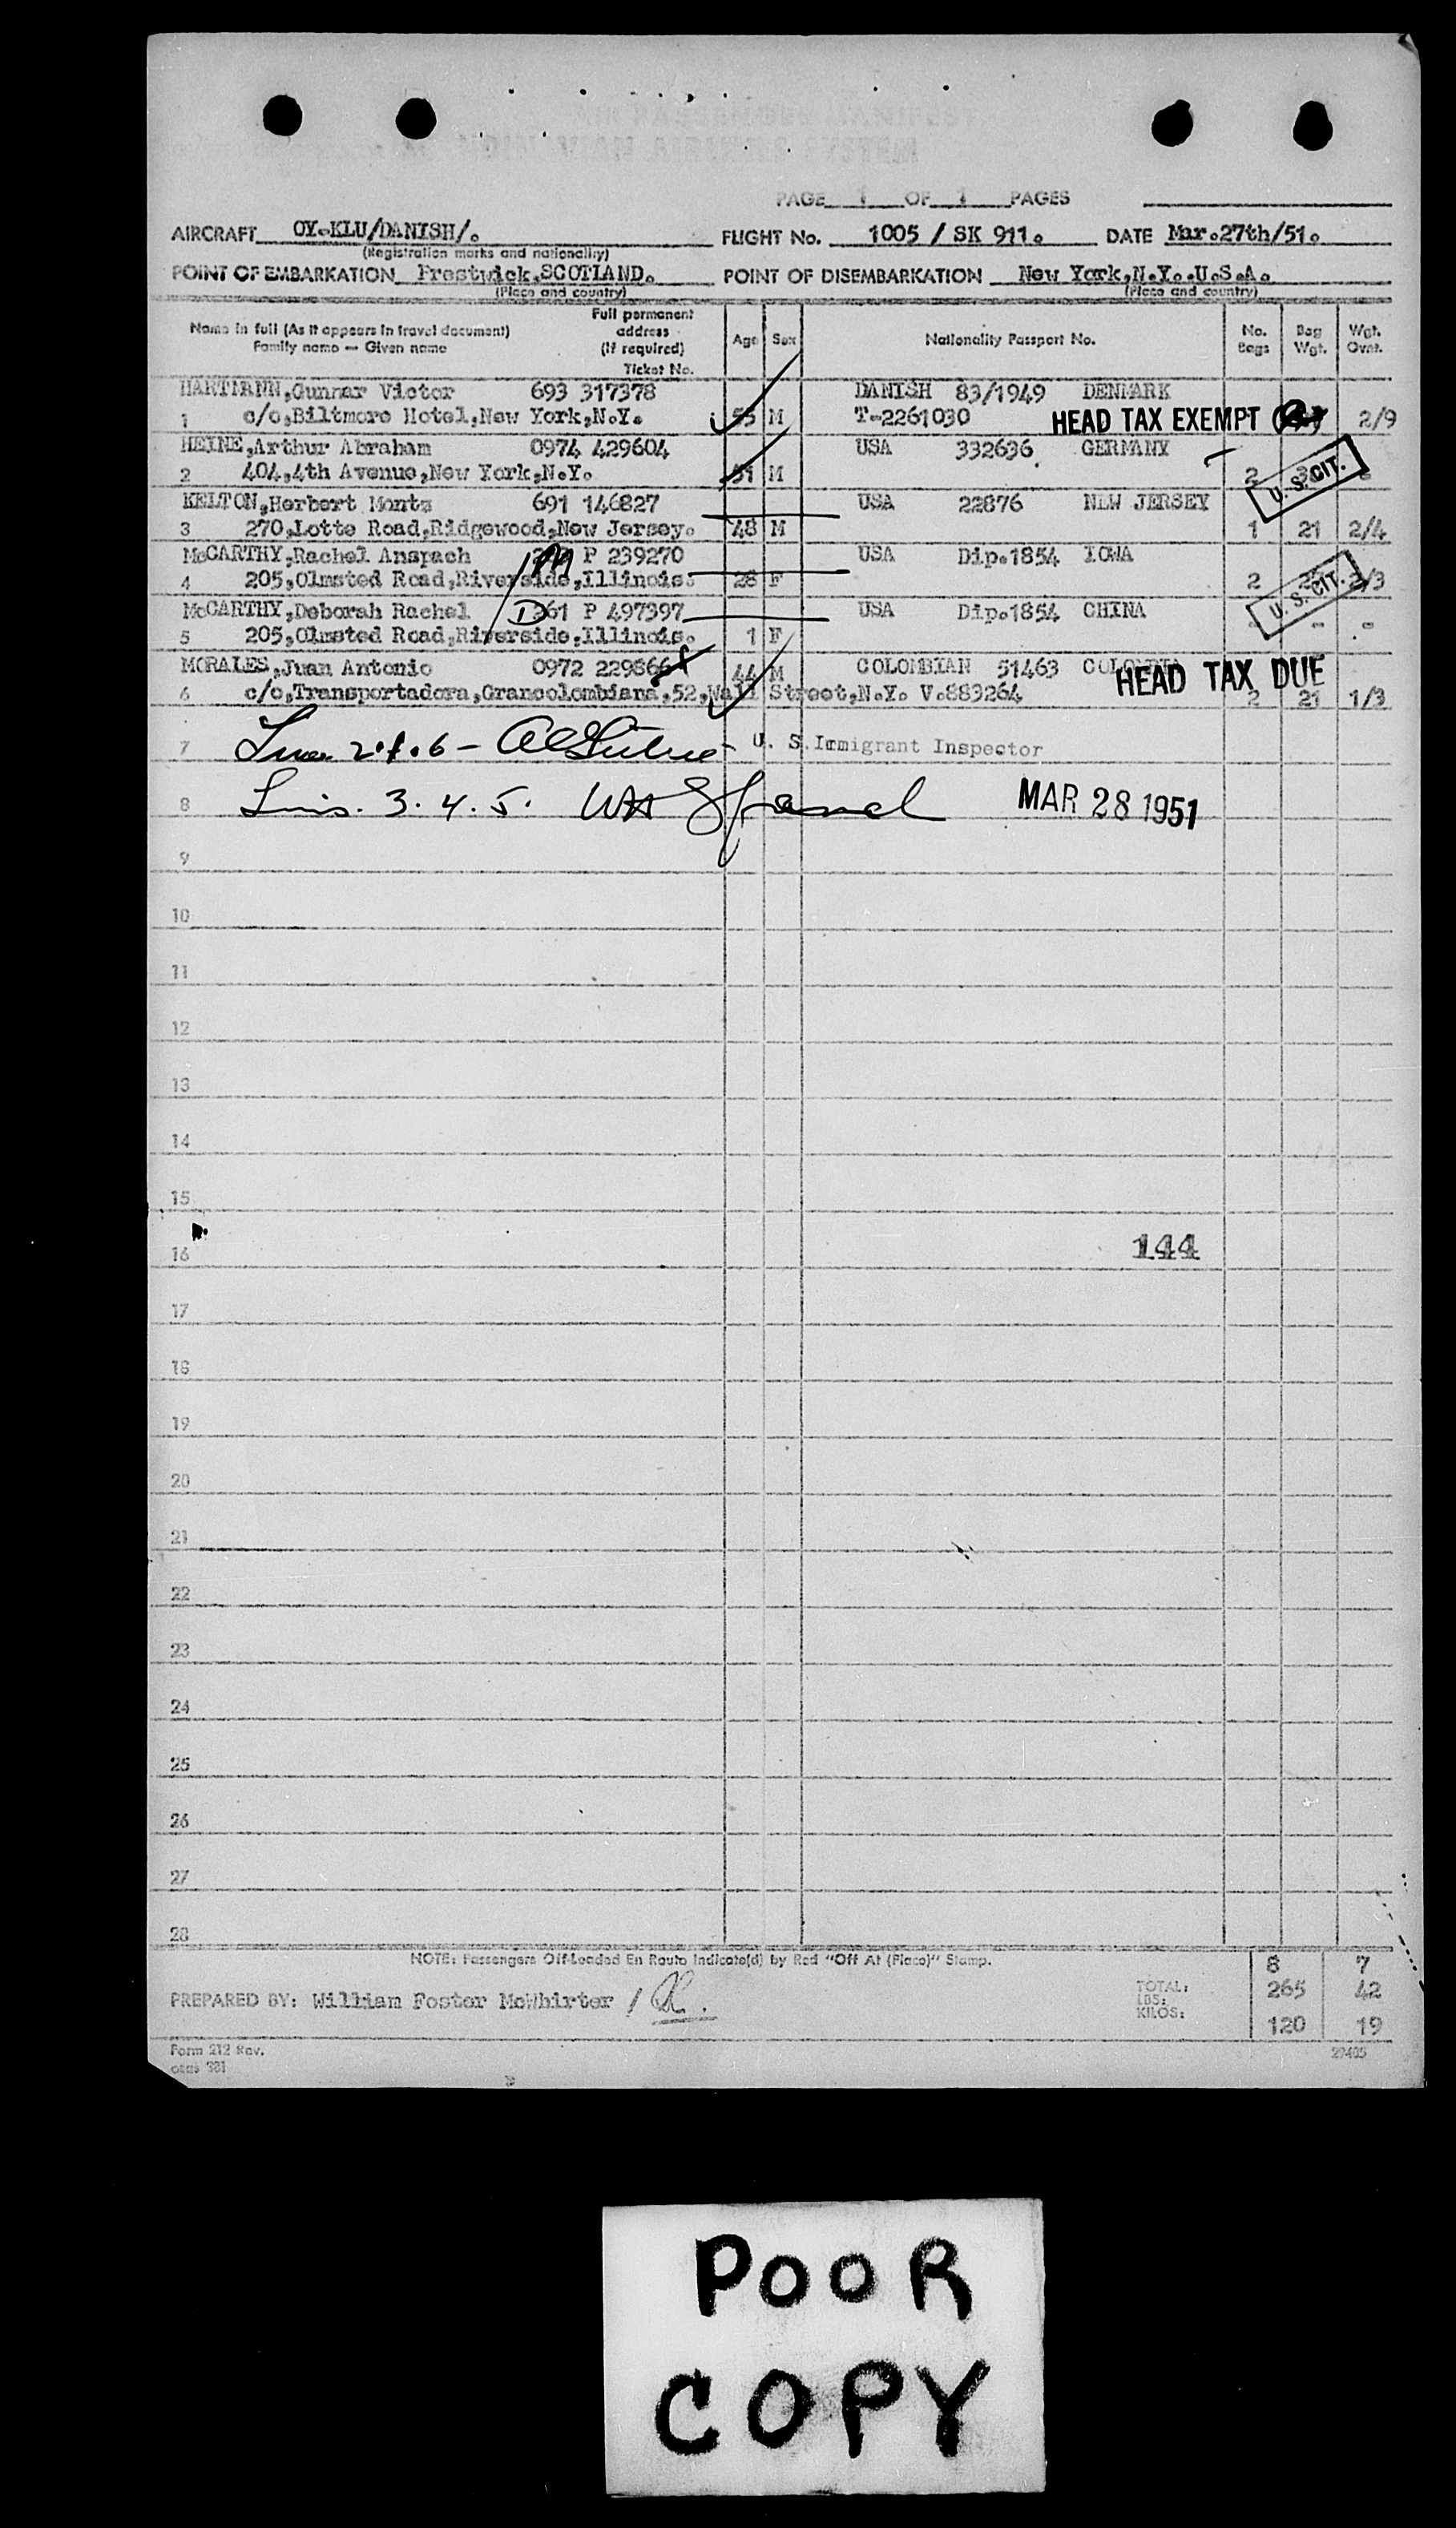 PAGE 1 OF 1 PAGES
AIRCRAFT OY-KLU/DANISH/. FLIGHT No. 1005 / SK 911. DATE Mar.27th/51.
(Registration marks and nationality)
POINT OF EMBARKATION Prestwick,SCOTLAND. POINT OF DISEMBARKATION New York,N.Y..U.S.A.
(Place and country) (Place and country)
Name in full (As it appears in travel document) Family name — Given name Full permanent address (if required) Ticket No. Age Sex Nationality Passport No. No. Bags Bag Wgt. Wgt. Ovnt.
HARTMANN,Gunnar Victor 693 317378 DANISH 83/1949 DENMARK
1 c/o,Biltmore Hotel,New York,N.Y. 55 M T-2261030 HEAD TAX EXEMPT 2/9
HEINE,Arthur Abraham 0974 429604 USA 332636 GERMANY
2 404,4th Avenue,New York,N.Y. 51 M 2 U. S. CIT.
KELTON,Herbert Montz 691 146827 USA 22876 NEW JERSEY
3 270,Lotte Road,Ridgewood,New Jersey. 48 M 1 21 2/4
McCARTHY,Rachel Anspach P 239270 USA Dip.1854 IOWA
4 205,Olmsted Road,Riverside,Illinois. 28 F 2 U. S. CIT. 2/3
McCARTHY,Deborah Rachel 261 P 497397 USA Dip.1854 CHINA
5 205,Olmsted Road,Riverside,Illinois. 1 F - - -
MORALES,Juan Antonio 0972 229866 44 M COLOMBIAN 51463 COLOMBIA HEAD TAX DUE
6 c/o,Transportadora,Grancolombiana,52,Wall Street,N.Y. V.883264 2 21 1/3
7 2.1.6 - U. S. Immigrant Inspector
8 3. 4. 5. MAR 28 1951
9
10
11
12
13
14
15
16 144
17
18
19
20
21
22
23
24
25
26
27
28
NOTE: Passengers Off-Loaded En Route Indicate(d) by Red "Off At (Place)" Stamp. 8 7
PREPARED BY: William Foster McWhirter / TOTAL: LBS: 265 42
KILOS: 120 19
Form 212 Rev.
POOR
COPY